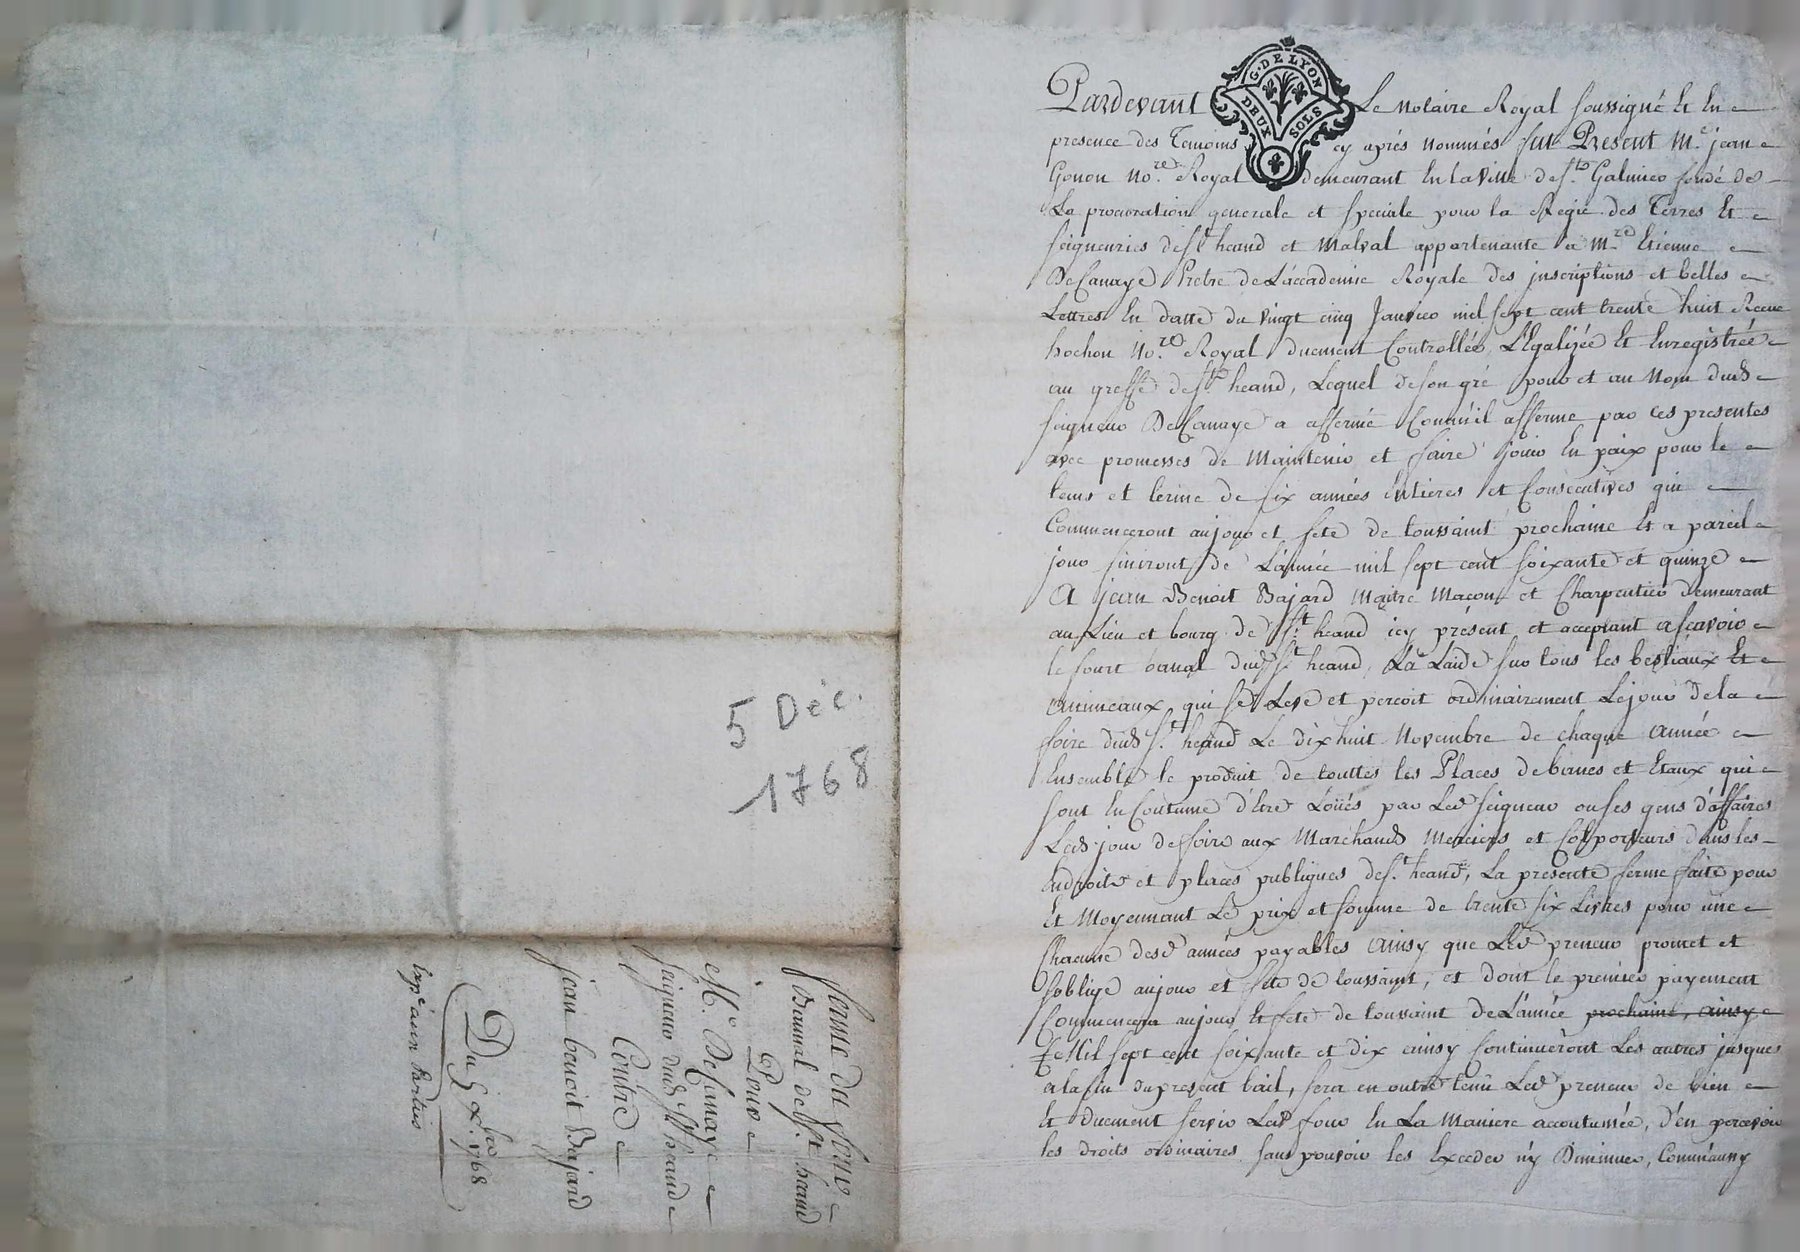 G. DE LYON
DEUX SOLS
Pardevant Le Notaire Royal soussigné Et En
presence des Temoins cy aprés nommés fut Present Me. jean
Gonon No.re Royal demeurant En la Ville de St. Galmier fondé de
La procuration generale et speciale pour la Regie des Terres Et
seigneuries de St heand et Malval appartenante a M.re Etienne
DeCanaye Prêtre de L'accademie Royale des jnscriptions et belles
Lettres En datte du Vingt cinq Janvier mil sept cent trente huit Receue
hochon No.re Royal duement Controllée, L'Egalizée Et Enregistrée
au greffe de St. heand, Lequel de son gré pour et au Nom dud
seigneur DeCanaye a affermé Comm'il afferme par ces presentes
avec promesses de Maintenir et faire jouir En paix pour le
tems et terme de six années Entieres et Consecutives qui
Commenceront au jour et fete de toussaint prochaine Et a pareil
jour finiront de L'année mil sept cent soixante et quinze
A jean Benoit Bajard Maitre Macon et Charpentier demeurant
au Lieu et bourg de St. heand icy présent et acceptant ascavoir
le fourt banal dud St heand, La Laide sur tous les bestiaux Et
Animeaux qui se Leve et percoit ordinairement Le jour de la
foire dud St. heand Le dix huit Novembre de chaque Année
Ensemble le produit de touttes les Places de bancs et Etaux qui
sont En Coutume d'Etre Loüés par Led seigneur ou ses gens d'affaires
Led. jour de foire aux Marchands Merciers et Colporteurs dans les
Endroits et places publiques de St. heand, La presente ferme faite pour
Et Moyennant Le prix et somme de trente six Livres pour une
Chacune desd années payables Ainsy que Led preneur promet et
s'oblige au jour et fete de toussaint, et dont le premier payement
Commencera au jour Et fete de toussaint de L'année prochaine, ainsy
Mil sept cent soixante et dix ainsy Continueront Les autres jusques
a la fin du present bail, sera en outre tenu Led preneur de bien
Et duement servir Led four En La Maniere accoutumée, d'en percevoir
les droits ordinaires sans pouvoir les Exceder ny Diminuer, Comm'aussy
5 Déc.
1768
ferme du four
Bannal de St. heand
Pour
M.e DeCanaye
seigneur dud St heand
Contre
jean benoit Bajard
Du 5 Xbre 1768